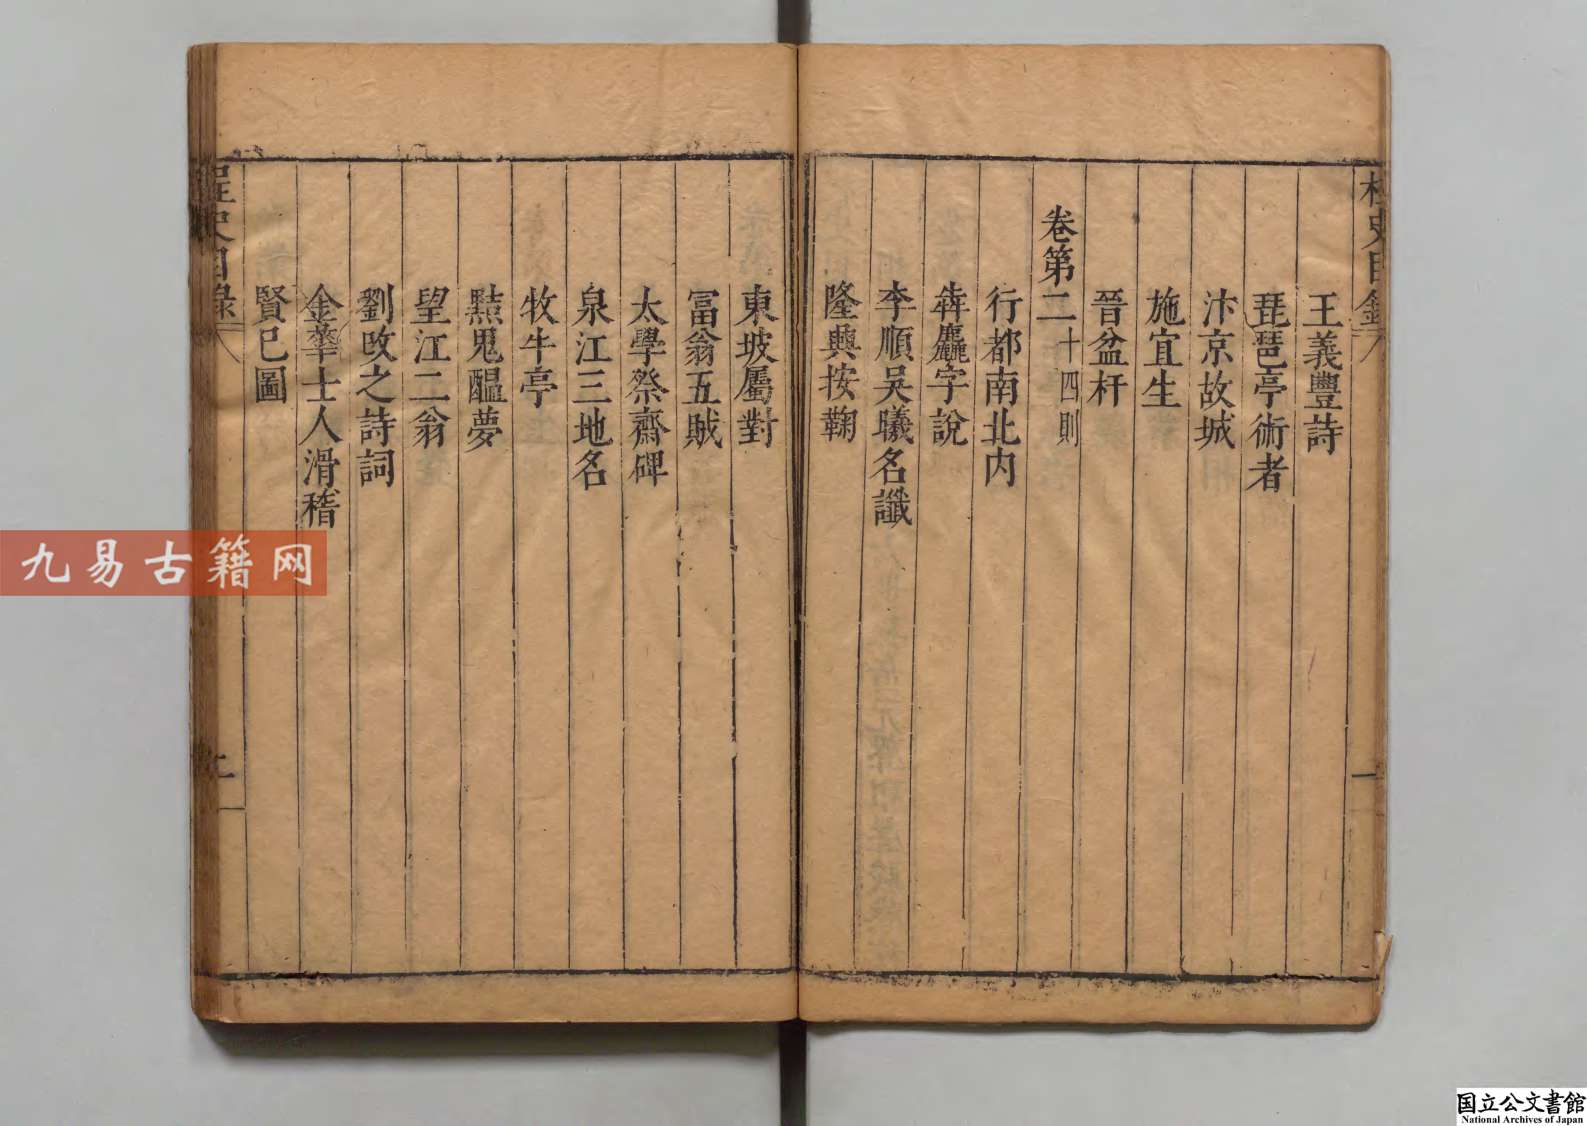 桯史目錄
王義豐詩
琵琶亭術者
汴京故城
施宜生
晉盆杅
卷第二十四則
行都南北内
犇麤字說
李順吳曦名讖
隆興按鞠
東坡屬對
富翁五賊
太學祭齋碑
泉江三地名
牧牛亭
㸃鬼醖夢
望江二翁
劉改之詩詞
金華士人滑稽
賢已圖
桯史目錄
九易古籍网
国立公文書館
National Archives of Japan